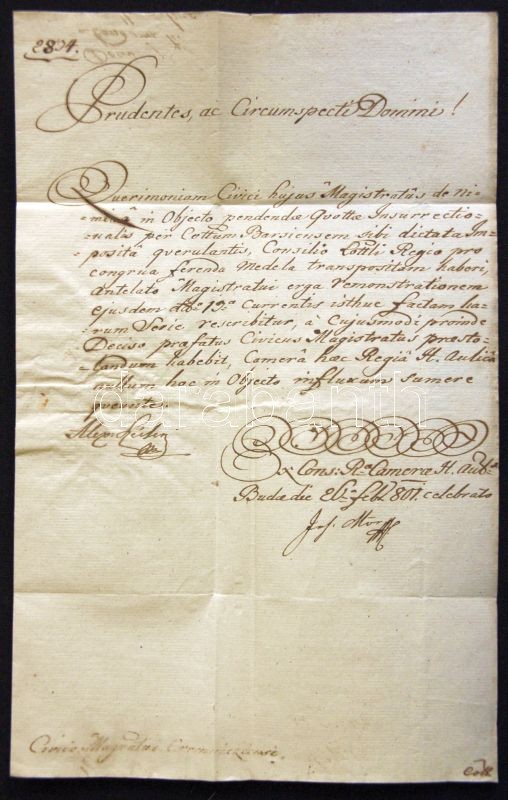 2894.
Prudentes, ac Circumspecti Domini!
Querimoniam Civici hujus Magistratûs de ni-
-miâ in Objecto pendendæ Quottæ Insurrectio-
-nalis per Cottum Barsiensem sibi dictatim im-
-positâ querulantis, Consilio Lottli Regio pro
congrua ferenda Medela transpositam haberi,
antelato Magistratui erga remonstrationem
ejusdem dto 19a currentis isthuc factam ha-
rum Serie rescribitur, à Cujusmodi proinde
Deciso præfatus Civicus Magistratus præsto-
landum habebit, Camerâ hac Regiâ H. Aulicâ
nullum hoc in Objecto influxum sumere
valente.
Ex Cons: Ræ Cameræ H. Aulæ
Budæ die 26. Feb. 801. celebrato
Jos.
Civico Magratui Cremniciensi.